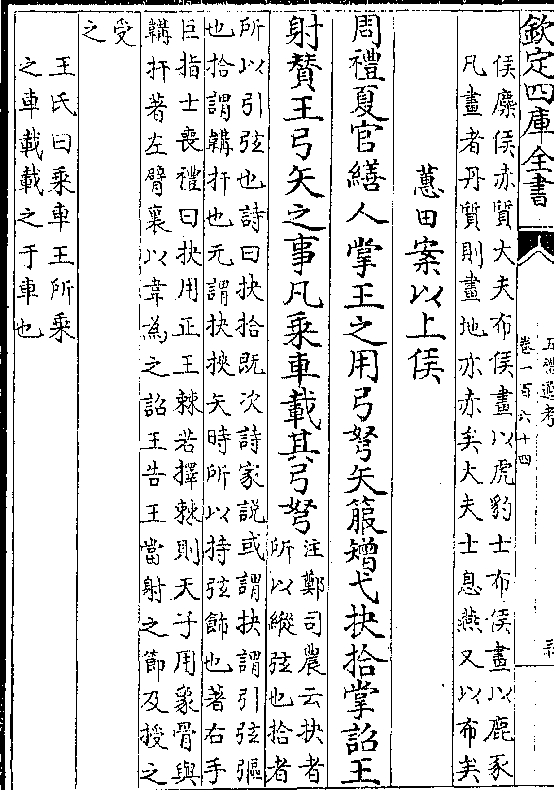 欽定四庫全書
五禮通考
卷一百六十四
侯麋侯赤質大夫布侯畫以虎豹士布侯畫以鹿豕
凡畫者丹質則畫地亦赤矣大夫士息燕又以布矣
蕙田案以上侯
周禮夏官繕人掌王之用弓弩矢箙矰弋抉拾掌詔王
射贊王弓矢之事凡乘車載其弓弩
注鄭司農云抉者
所以縱弦也拾者
所以引弦也詩曰抉拾既次詩家説或謂抉謂引弦彄
也拾謂韝扞也元謂抉挾矢時所以持弦飾也著右手
巨指士喪禮曰抉用正王棘若擇棘則天子用象骨與
韝扞著左臂裏以韋為之詔王告王當射之節及授之
受之
王氏曰乘車王所乘
之車載載之于車也